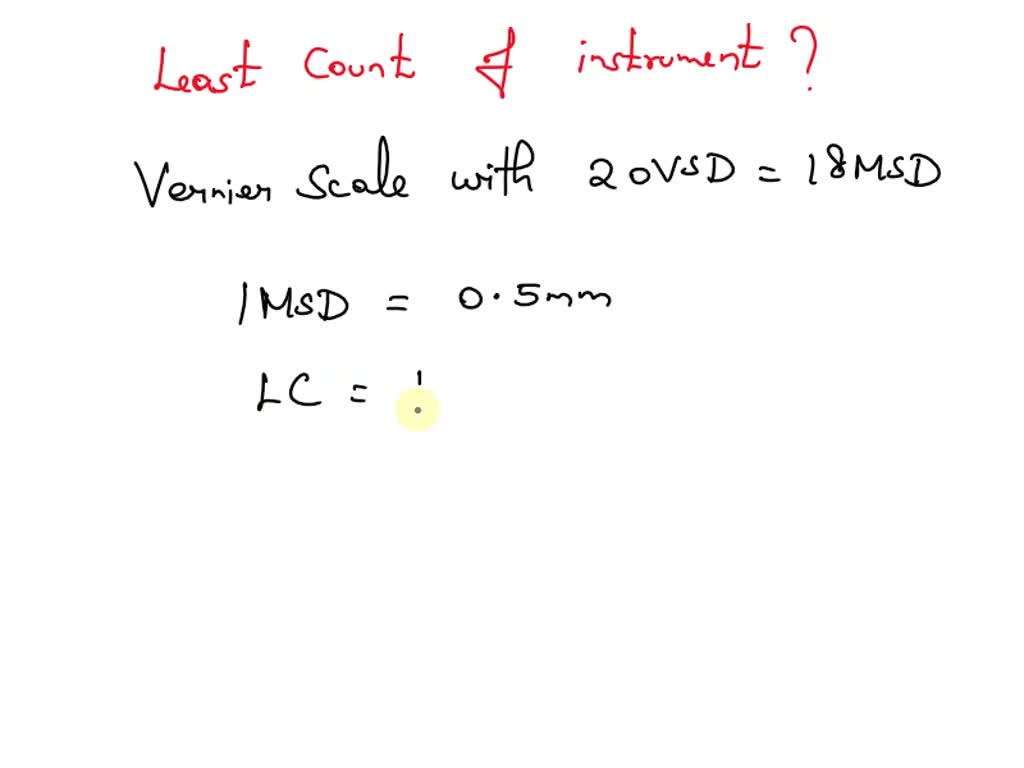 Least Count of instrument ?
Vernier Scale with 20VSD = 18MSD
1MSD = 0.5mm
LC = 1